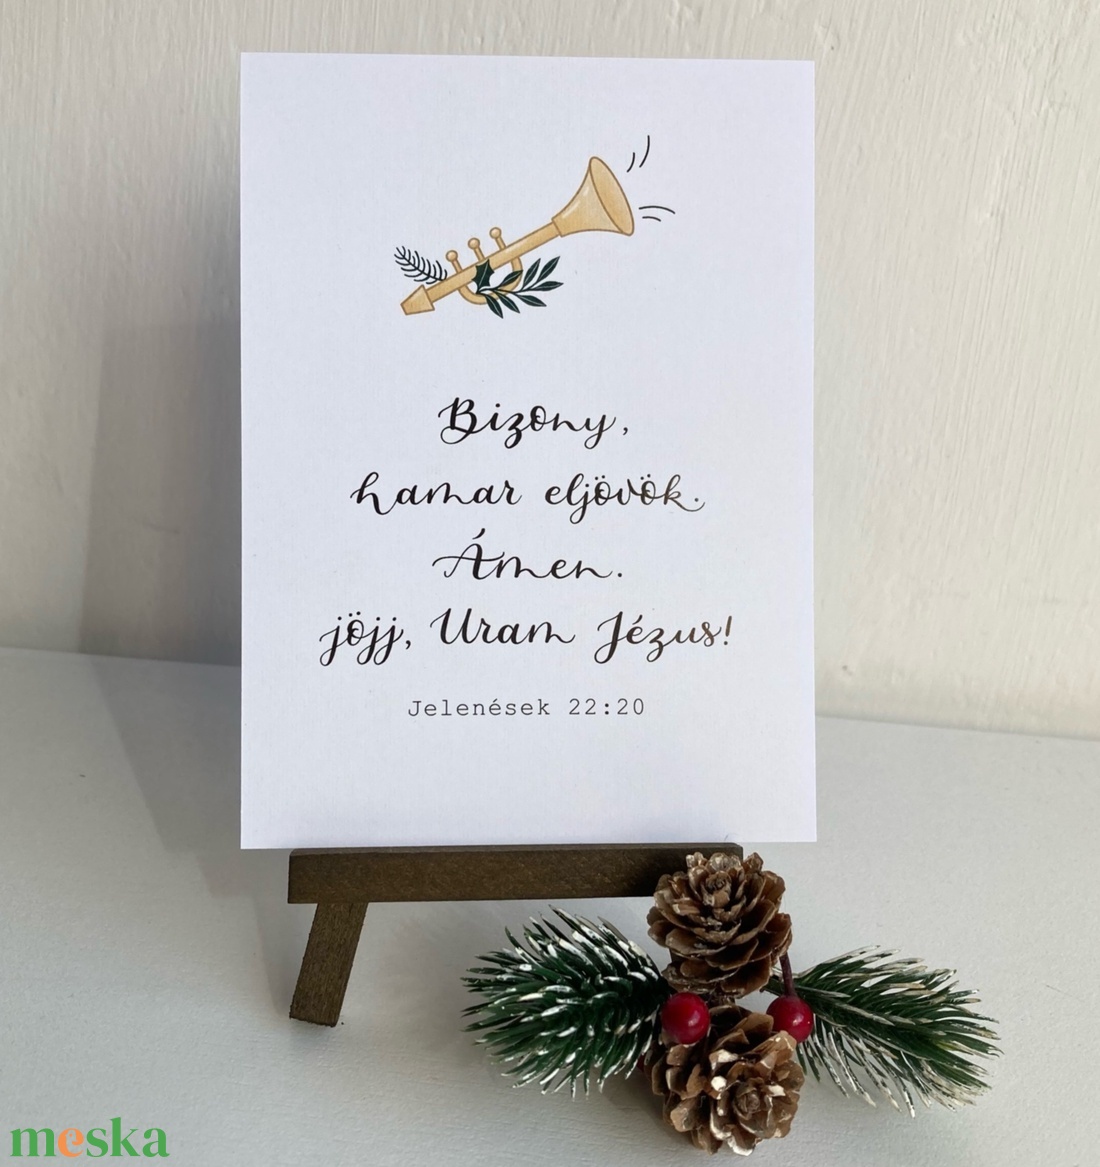 Bizony,
hamar eljövök.
Ámen.
jöjj, Uram Jézus!
Jelenések 22:20
meska